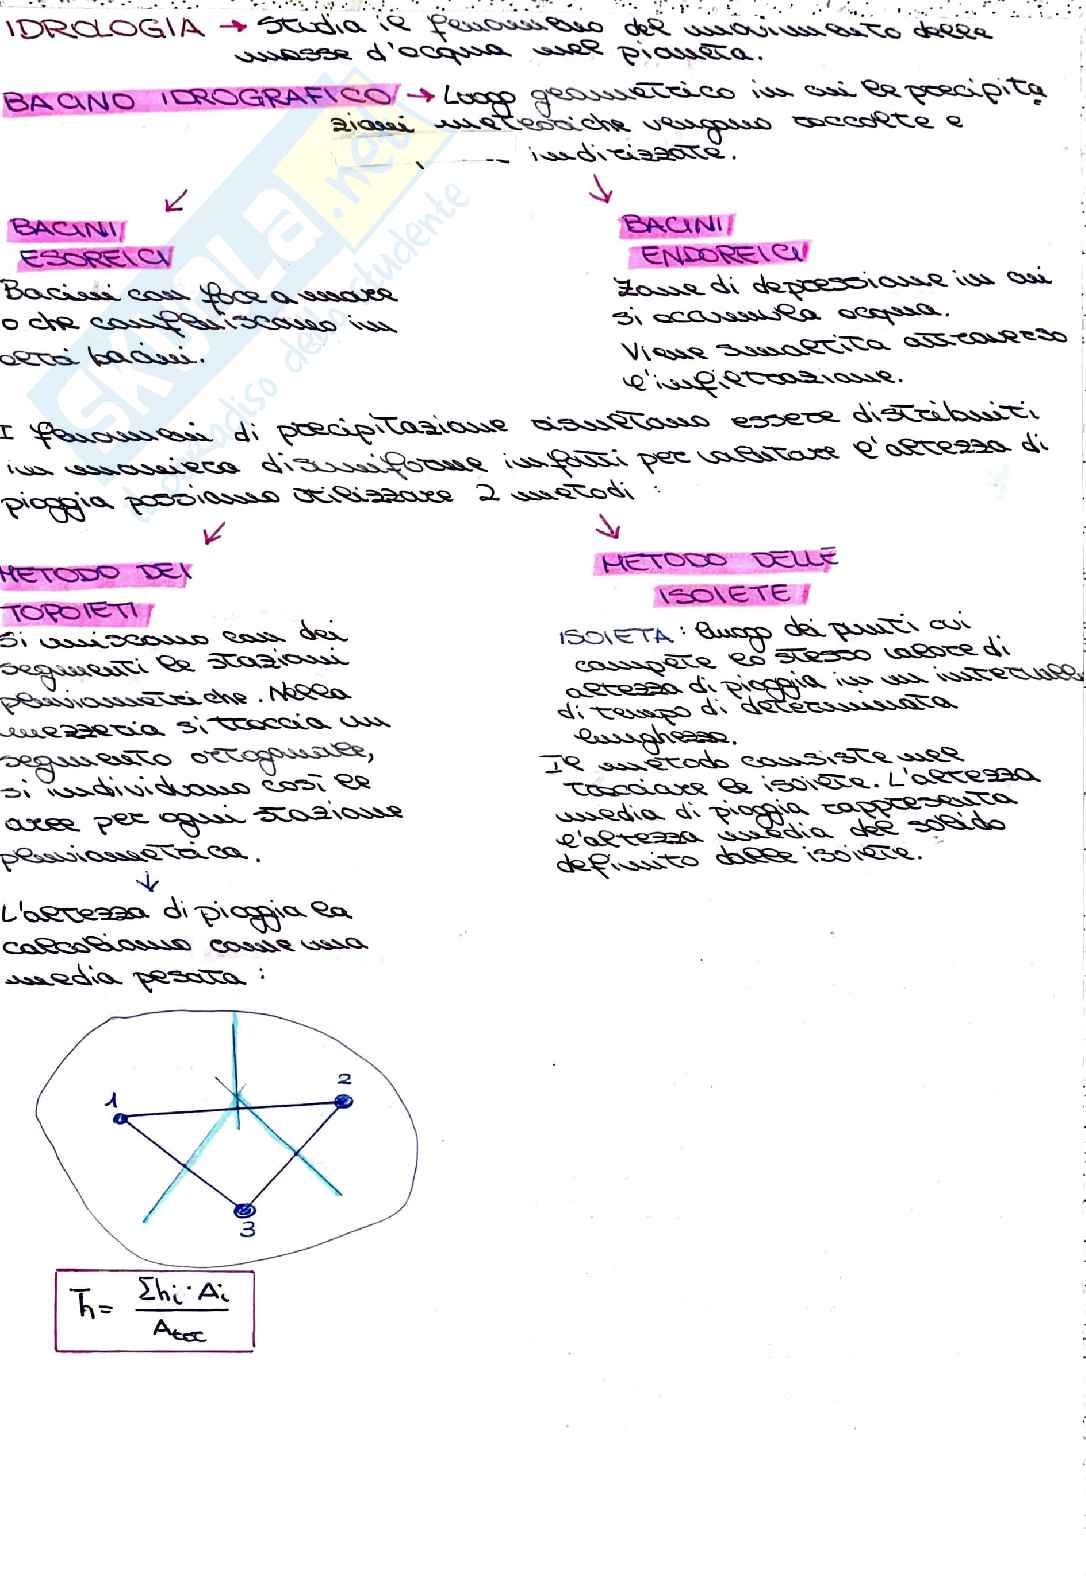 IDROLOGIA → Studia il fenomeno del movimento delle
masse d'acqua nel pianeta.
BACINO IDROGRAFICO → Luogo geometrico in cui le precipita
zioni meteoriche vengono raccolte e
indirizzate.
BACINI
ESOREICI
Bacini con foce a mare
o che confluiscono in
altri bacini.
BACINI
ENDOREICI
Zone di depressione in cui
si accumula acqua.
Viene smaltita attraverso
l'infiltrazione.
I fenomeni di precipitazione risultano essere distribuiti
in maniera disuniforme infatti per valutare l'altezza di
pioggia possiamo utilizzare 2 metodi:
METODO DEI
TOPOIETI
Si uniscono con dei
segmenti le stazioni
pluviometriche. Nella
mezzeria si traccia un
segmento ortogonale,
si individuano così le
aree per ogni stazione
pluviometrica.
L'altezza di pioggia la
calcoliamo come una
media pesata:
METODO DELLE
ISOIETE
ISOIETA: luogo dei punti cui
compete lo stesso valore di
altezza di pioggia in un intervallo
di tempo di determinata
lunghezza.
Il metodo consiste nel
tracciare le isoiete. L'altezza
media di pioggia rappresenta
l'altezza media del solido
definito dalle isoiete.
1
2
3
h̄ = Σhi · Ai / Atot
SKUOLA.net
il paradiso dello studente